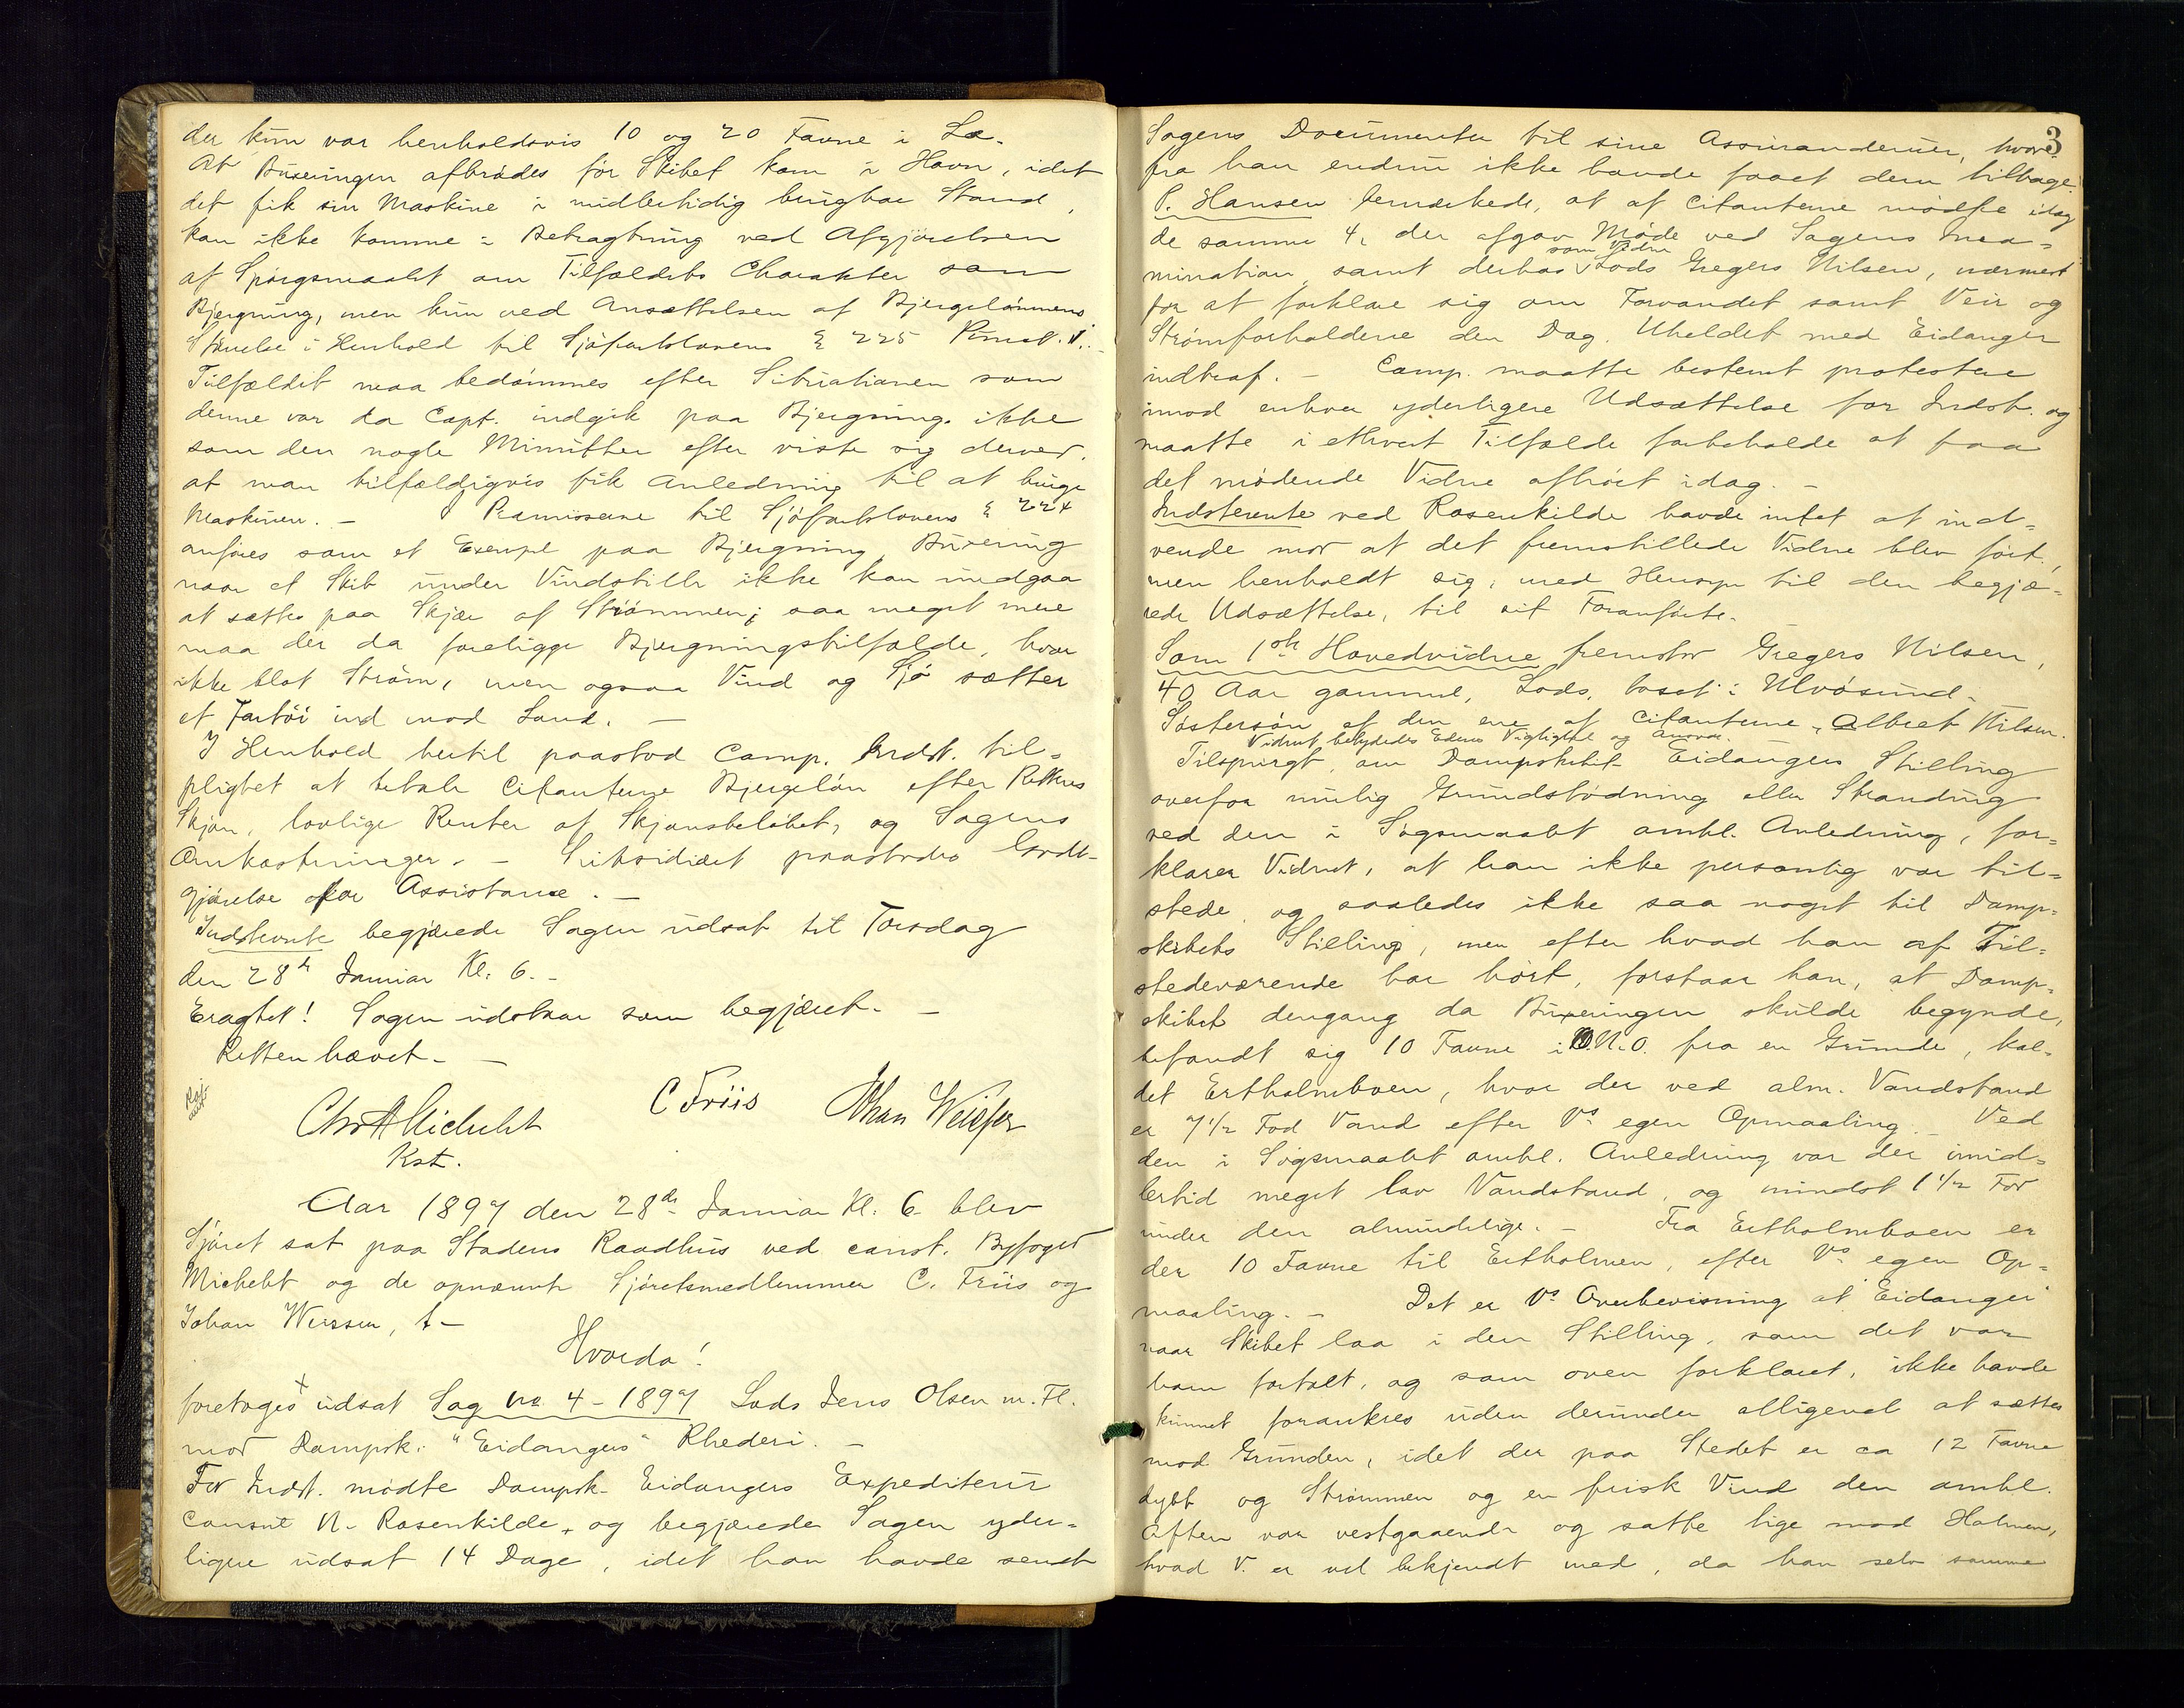 der kun var henholdsvis 10 og 20 Favne i Læ.
At Buxeringen afbrødes før Skibet kom i Havn, idet
det fik sin Maskine i midlertidig brugbar Stand,
kan ikke komme i Betragtning ved Afgjørelsen
af Spørgsmaalet om Tilfældets Charakter som
Bjergning, men kun ved Ansættelsen af Bjergelønnens
Størrelse i Henhold til Sjøfartslovens § 225
Tilfældet maa bedømmes efter Situationen som
denne var da Capt. indgik paa Bjergning, ikke
som den nogle Minutter efter viste sig derved,
at man tilfældigvis fik Anledning til at bruge
Maskinen. – I Præmisserne til Sjøfartslovens § 224
anføres som et Exempel paa Bjergning, Buxering
naar et Skib under Vindstille ikke kan undgaa
at sættes paa Skjær af Strømmen; saa meget mere
maa der da foreligge Bjergningstilfælde, hvor
ikke blot Strøm, men ogsaa Vind og Sjø sætter
et Fartøi ind mod Land. –
I Henhold hertil paastod Comp. Indst. til-
pligtet at betale Citanterne Bjergeløn efter Rettens
Skjøn, lovlige Renter af Skjønsbeløbet, og Sagens
Omkostninger. – Subsidiært paastodes Godt-
gjørelse for Assistance. –
Indstevnte begjærede Sagen udsat til Torsdag
den 28de Januar Kl. 6. –
Eragtet! Sagen udstaar som begjært. –
Retten hævet. –
Chr A Michelet C Friis Johan Weisser
Kst.
Aar 1897 den 28de Januar Kl. 6 blev
Sjøret sat paa Stadens Raadhus ved const. Byfoged
Michelet og de opnævnte Sjøretsmedlemmer C. Friis og
Johan Weisser, t –
Hvorda!
foretoges x udsat Sag No. 4 – 1897 Lods Jens Olsen m. Fl.
mod Dampsk. "Eidangers" Rhederi. –
For Indst. mødte Dampsk. Eidangers Expeditør
Consul N. Rosenkilde, og begjærede Sagen yder-
ligere udsat 14 Dage, idet han havde sendt
3
Sagens Documenter til sine Assurandeurer, hvor-
fra han endnu ikke havde faaet dem tilbage.
P. Hansen bemærkede, at af Citanterne mødte idag
de samme 4, der afgav Møde ved Sagens
mination, samt derhos som Vidne Lods Gregers Nilsen, nærmest
for at forklare sig om Farvandet samt Veir og
Strømforholdene den Dag. Uheldet med Eidanger
indtraf. – Comp. maatte bestemt protestere
imod enhver yderligere Udsættelse for Indst. og
maatte i ethvert Tilfælde forbeholde at faa
det mødende Vidne afhørt idag. –
Indstevnte ved Rosenkilde havde intet at ind-
vende mod at det fremstillede Vidne blev ført,
men henholdt sig, med Hensyn til den begjæ-
rede Udsættelse, til sit Foranførte.
Som 1ste Hovedvidne fremstod Gregers Nilsen,
40 Aar gammel, Lods, bosat i Ulvøsund.
Søstersøn af den ene af Citanterne, Albret Nilsen.
Vidnet betydedes Edens Vigtighed og Ansvar.
Tilspurgt, om Dampskibet Eidangers Stilling
overfor mulig Grundstødning eller Stranding
ved den i Søgsmaalet omhl. Anledning, for-
klarer Vidnet, at han ikke personlig var til-
stede, og saaledes ikke saa noget til Damp-
skibets Stilling, men efter hvad han af Til-
stedeværende har hørt, forstaar han, at Damp-
skibet dengang da Buxeringen skulde begynde,
befandt sig 10 Favne i O.N.O. fra en Grunde, kal-
det Ertholmboen, hvor der ved alm. Vandstand
er 7 1/2 Fod Vand efter Vs egen Opmaaling. – Ved
den i Søgsmaalet omhl. Anledning var der imid-
lertid meget lav Vandstand, og mindst 1 1/2 Fod
under den almindelige. – Fra Ertholmboen er
der 10 Favne til Ertholmen, efter Vs egen Op-
maaling. – Det er Vs Overbevisning at Eidanger
naar Skibet laa i den Stilling, som det var
ham fortalt, og som oven forklaret, ikke havde
kunnet forankres uden derunder alligevel at sættes
mod Grunden, idet der paa Stedet er ca 12 Favne
dybt og Strømmen og en frisk Vind den omhl.
Aften var vestgaaende og satte lige mod Holmen,
hvad V. er vel bekjendt med, da han selv samme